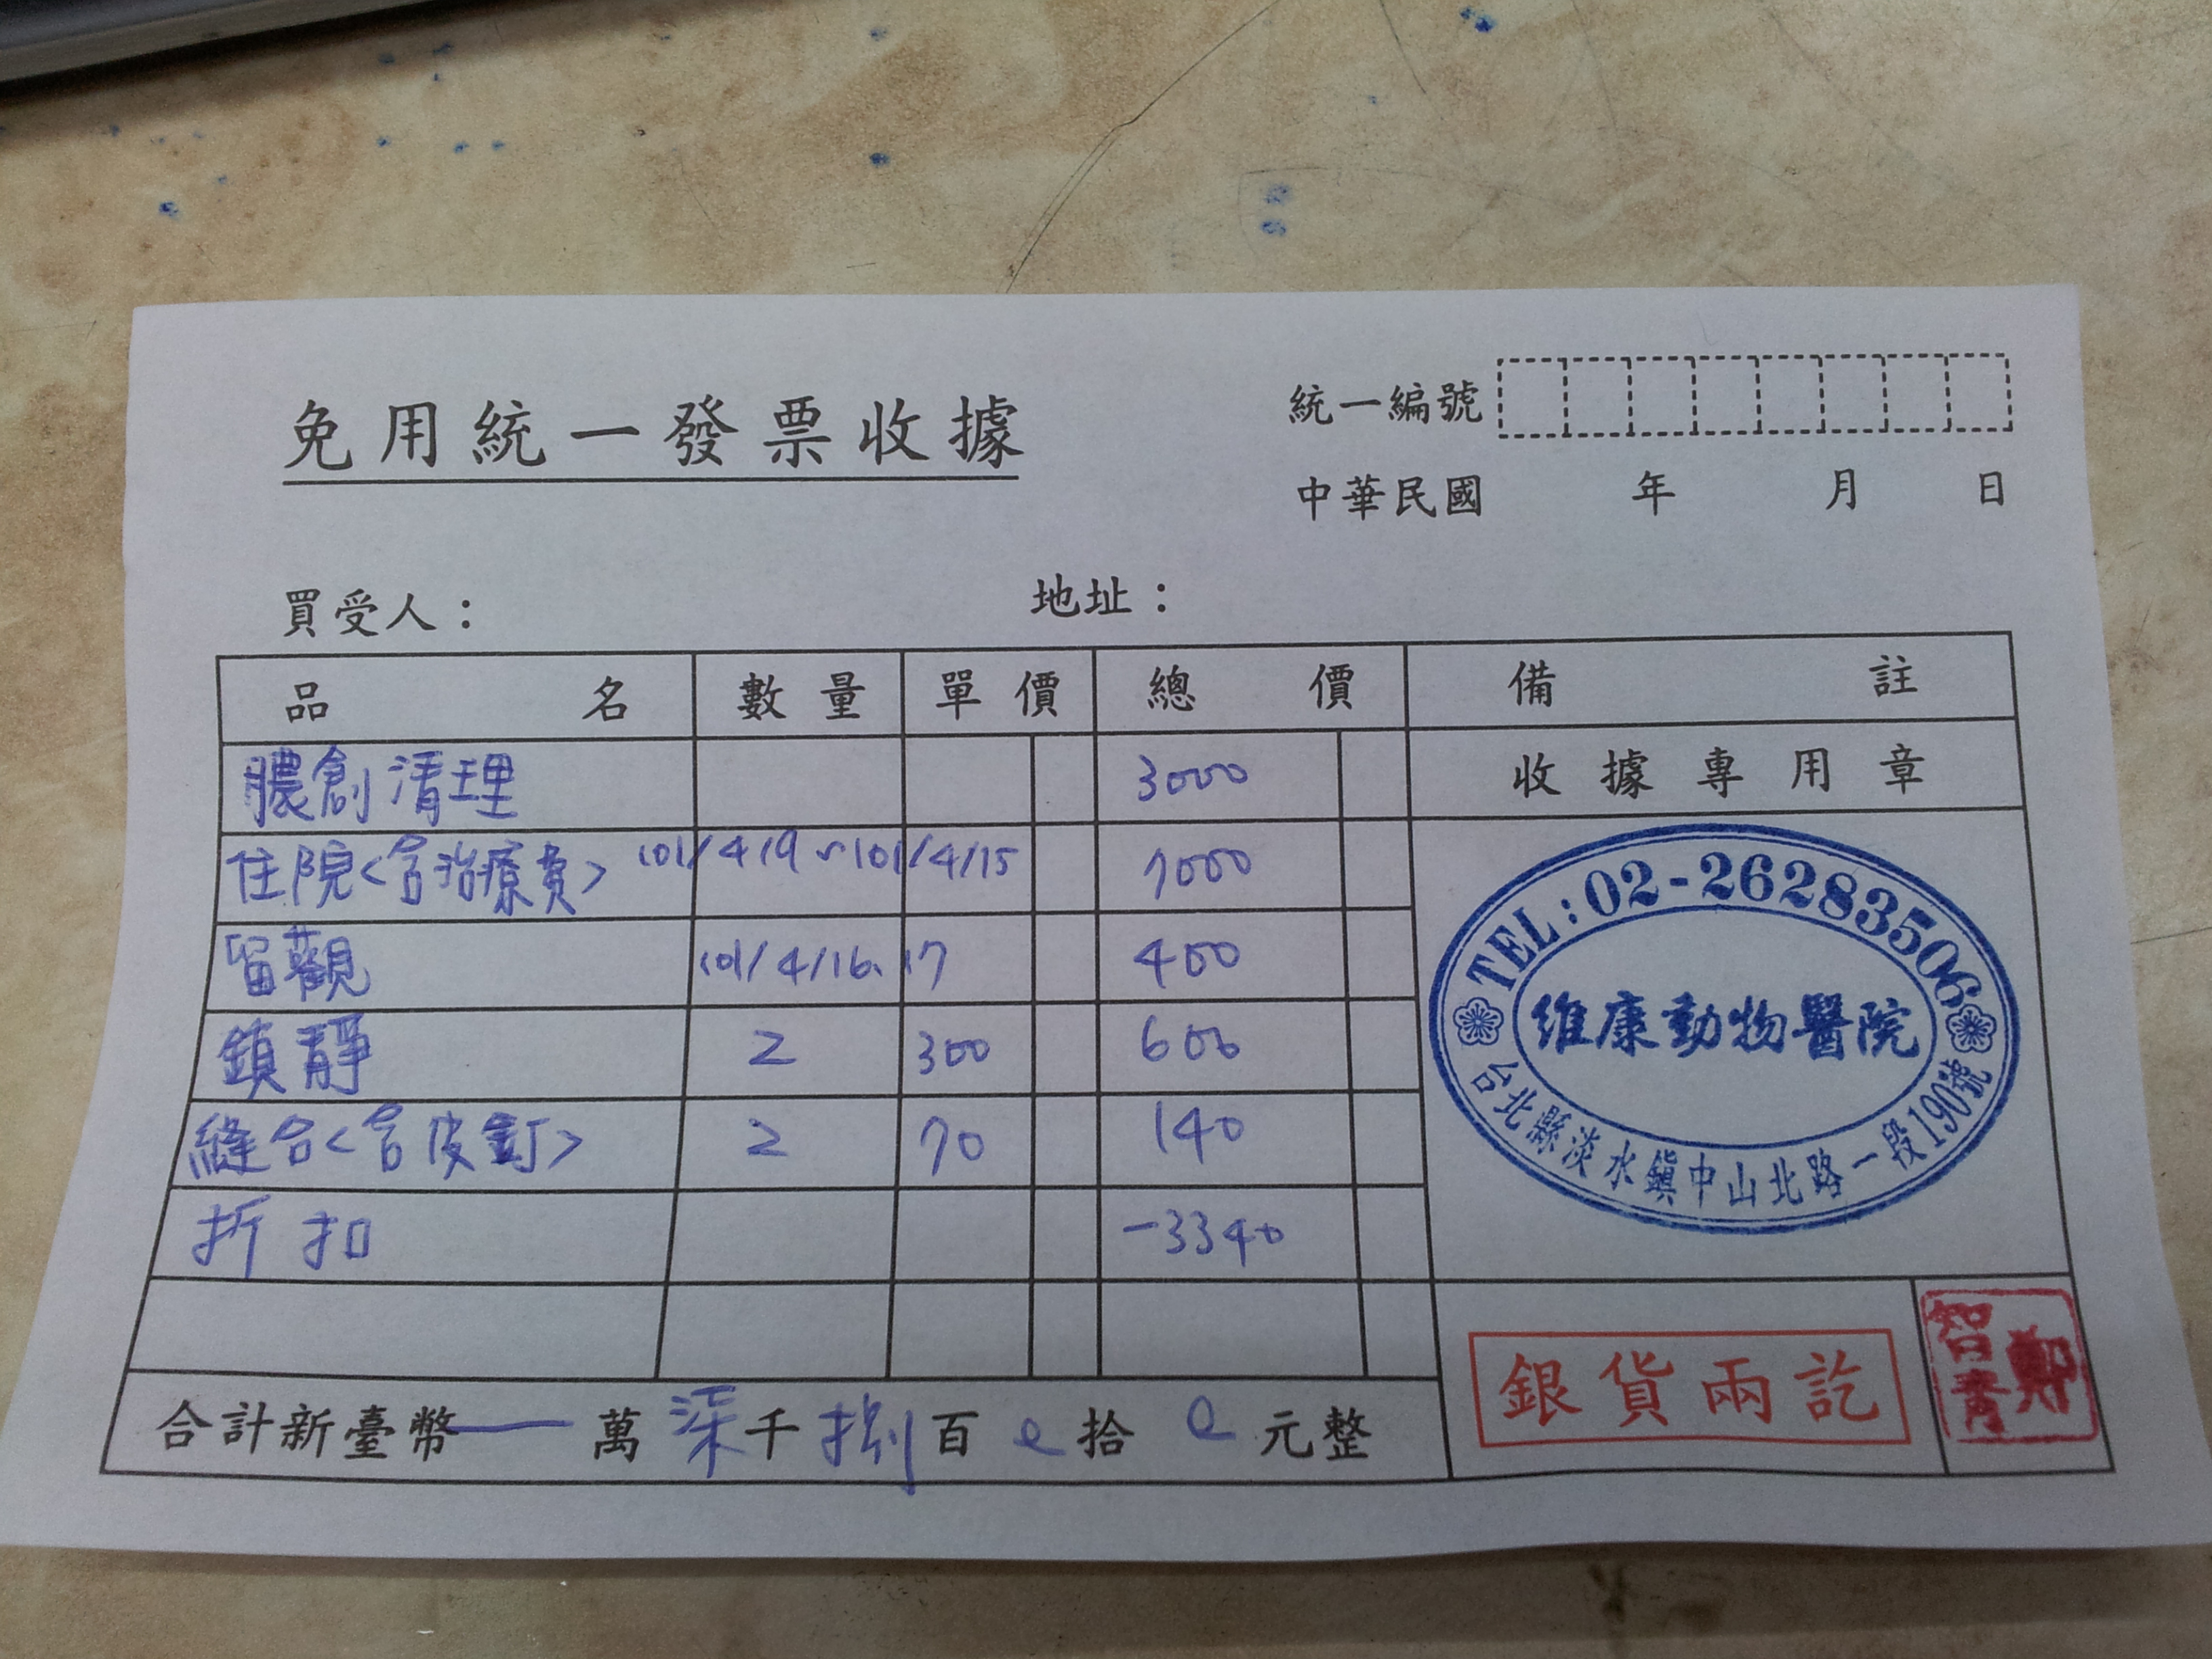 免用統一發票收據
統一編號
中華民國 年 月 日
買受人：
地址：
品名 數量 單價 總價 備註
膿創清理 3000
收據專用章
住院<含治療費> 101/4/9~101/4/15 7000
留觀 101/4/16、17 400
鎮靜 2 300 600
縫合<含皮釘> 2 70 140
折扣 -3340
合計新臺幣 — 萬 柒 千 捌 百 0 拾 0 元整
TEL：02-26283506
維康動物醫院
台北縣淡水鎮中山北路一段190號
銀貨兩訖
鄭智青